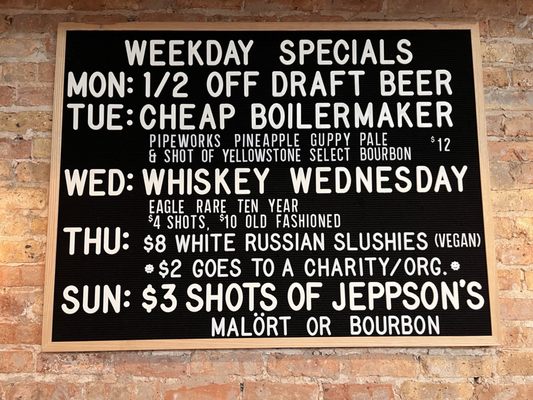 WEEKDAY SPECIALS
MON: 1/2 OFF DRAFT BEER
TUE: CHEAP BOILERMAKER
PIPEWORKS PINEAPPLE GUPPY PALE
& SHOT OF YELLOWSTONE SELECT BOURBON $12
WED: WHISKEY WEDNESDAY
EAGLE RARE TEN YEAR
$4 SHOTS, $10 OLD FASHIONED
THU: $8 WHITE RUSSIAN SLUSHIES (VEGAN)
$2 GOES TO A CHARITY/ORG.
SUN: $3 SHOTS OF JEPPSON'S
MALÖRT OR BOURBON